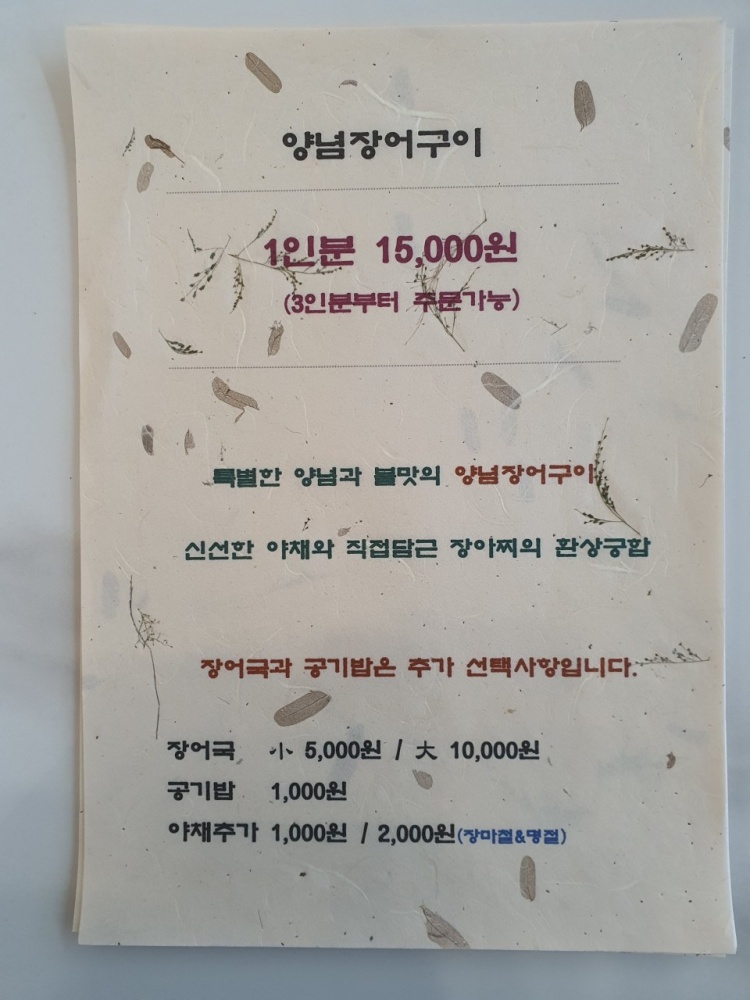 양념장어구이
1인분 15,000원
(3인분부터 주문가능)
특별한 양념과 불맛의 양념장어구이
신선한 야채와 직접담근 장아찌의 환상궁합
장어국과 공기밥은 추가 선택사항입니다.
장어국 小 5,000원 / 大 10,000원
공기밥 1,000원
야채추가 1,000원 / 2,000원(장마철&명절)